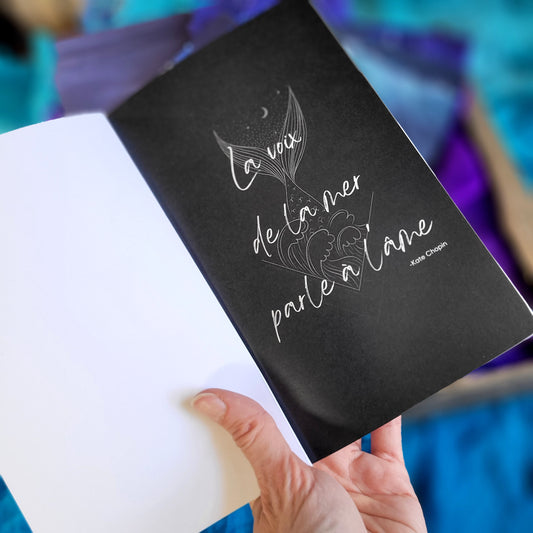 La voix
de la mer
parle à l'âme
-Kate Chopin